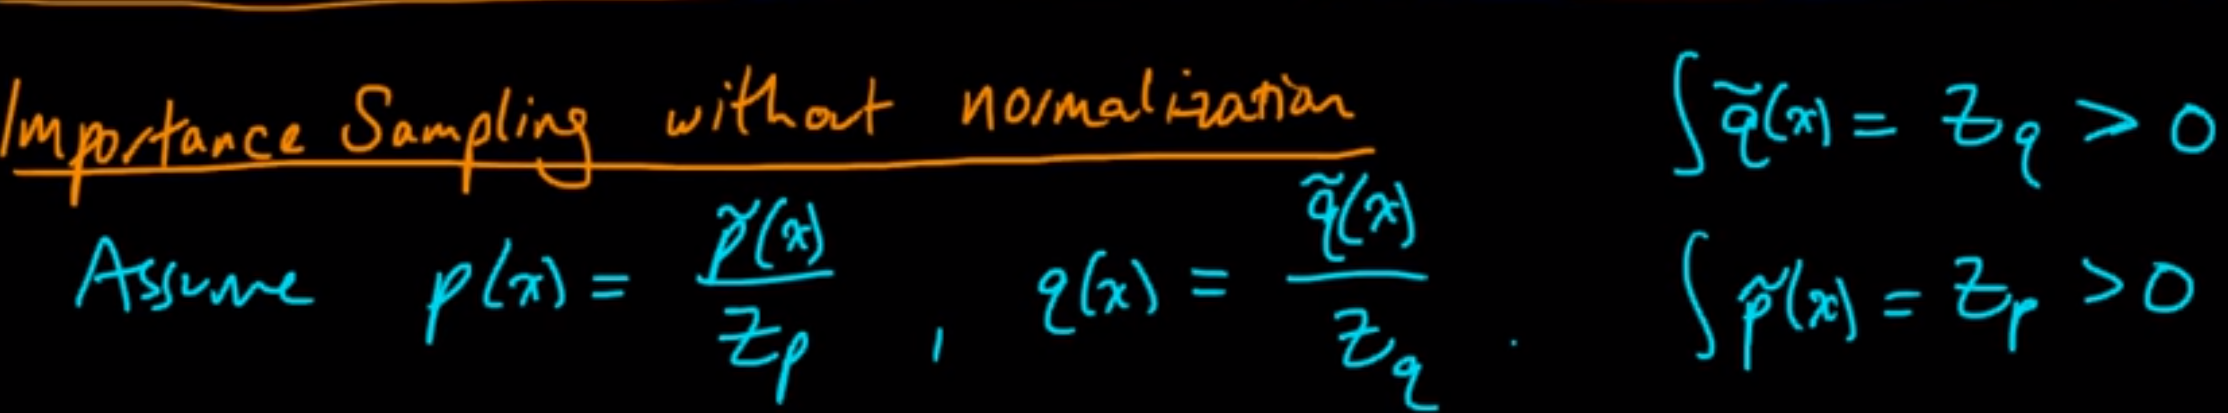 Importance Sampling without normalization
∫ q̃(x) = Z_q > 0
Assume p(x) = p̃(x) / Z_p , q(x) = q̃(x) / Z_q .
∫ p̃(x) = Z_p > 0